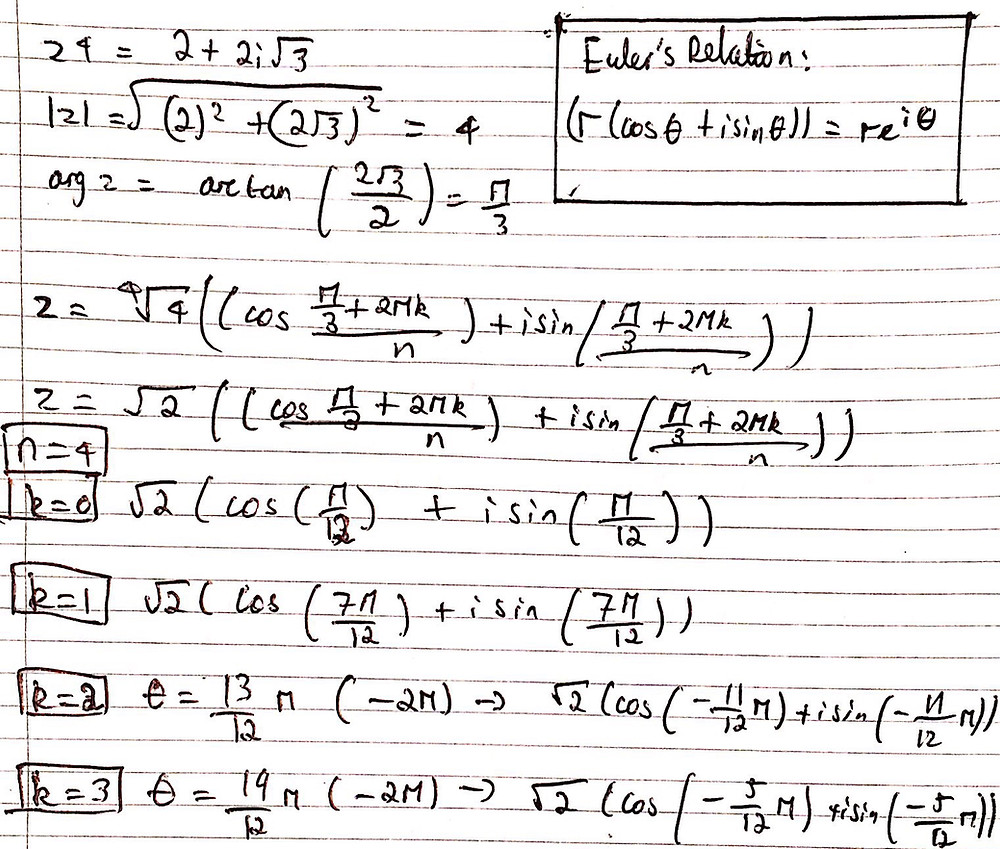 z4 = 2 + 2i√3
|z| = √((2)² + (2√3)²) = 4
arg z = arctan (2√3/2) = π/3
Euler's Relation:
(r (cosθ + isinθ)) = re^iθ
z = ⁴√4 ((cos (π/3 + 2πk)/n) + isin ((π/3 + 2πk)/n))
z = √2 ((cos (π/3 + 2πk)/n) + isin ((π/3 + 2πk)/n))
n=4
k=0 √2 (cos (π/12) + isin (π/12))
k=1 √2 (cos (7π/12) + isin (7π/12))
k=2 θ = 13/12 π (-2π) → √2 (cos (-11/12 π) + isin (-11/12 π))
k=3 θ = 19/12 π (-2π) → √2 (cos (-5/12 π) + isin (-5/12 π))